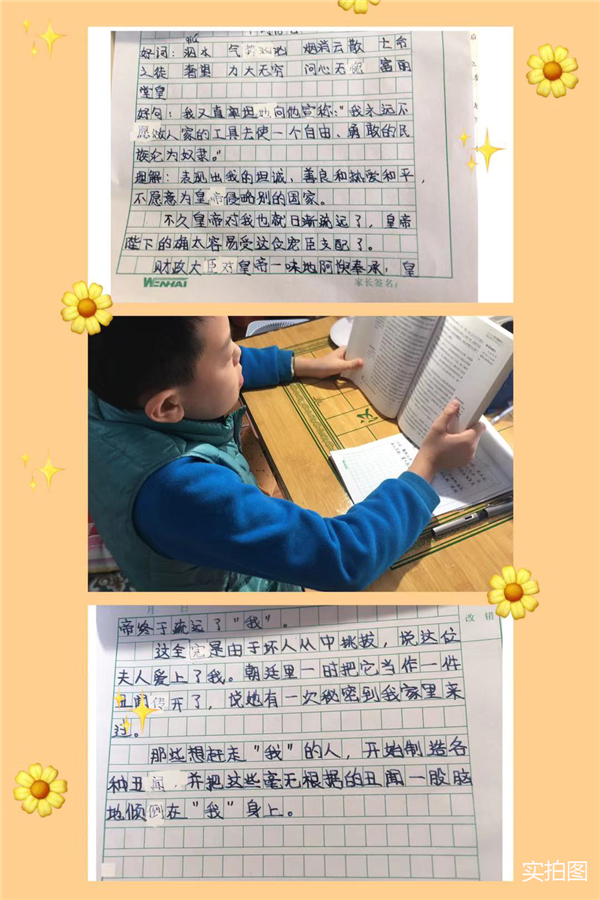 好词：烟水 气 烟消云散 上台
之徒 奢望 力大无穷 问心无愧 富丽
堂皇
好句：我又直率坦地向他宣称：“我永远不
愿做人家的工具去使一个自由、勇敢的民
族沦为奴隶。”
理解：表现出我的坦诚，善良和热爱和平，
不愿意为皇帝侵略别的国家。
不久皇帝对我也就日渐疏远了，皇帝
陛下的确太容易受这位宠臣支配了。
财政大臣对皇帝一味地阿谀奉承，皇
WENHAI
家长签名：
汉
月 日
改 错
帝终于疏远了“我”。
这全是由于坏人从中挑拨，说这位
夫人爱上了我。朝廷里一时把它当作一件
丑闻传开了，说她有一次秘密到我家里来
过。
那些想赶走“我”的人，开始制造各
种丑闻，并把这些毫无根据的丑闻一股脑
地倾倒在“我”身上。
实拍图